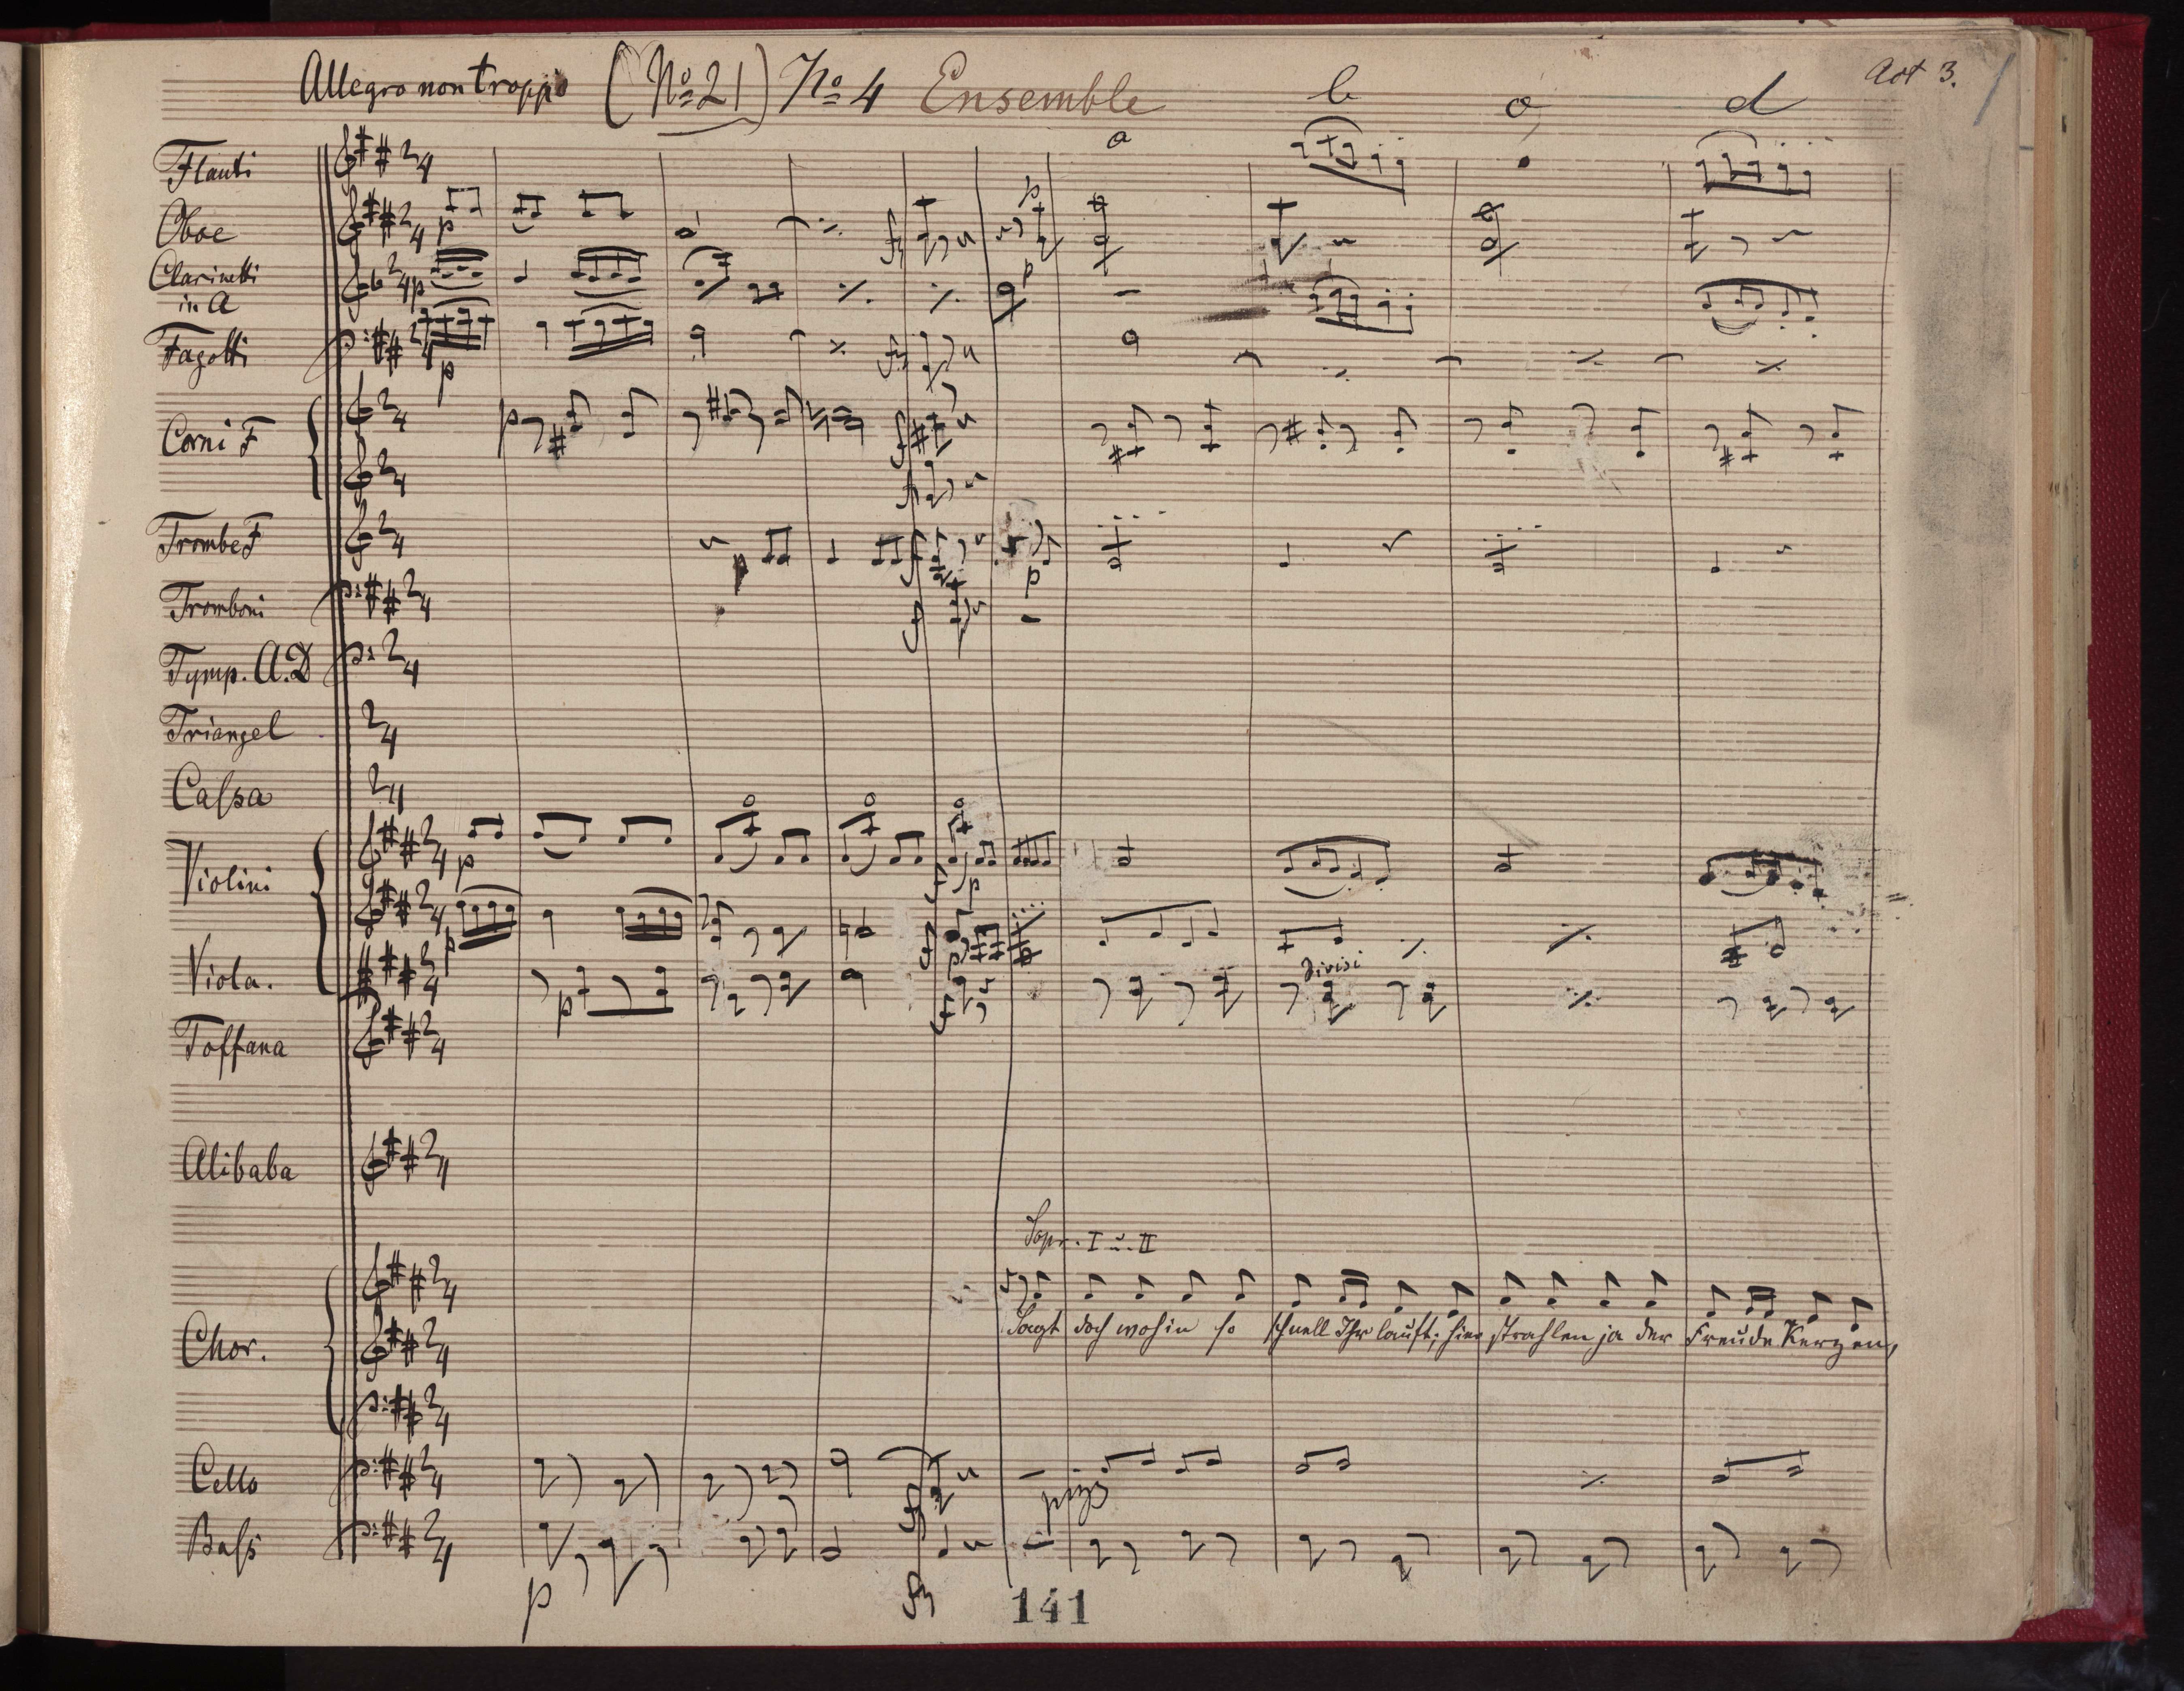 Allegro non troppo (No 21) No 4 Ensemble
Act 3.
a b c d
Flauti
Oboe
p
p
Clarinetti
in A
p
p
Fagotti
p
Corni F
p
Trombe F
p
f
p
Tromboni
f
Tymp. A.D
Triangel
Cassa
Violini
p
f
p
p
f
p
Viola.
p
f
divisi
Toffana
Alibaba
Sopr. I u. II
Chor.
Sagt doch wohin so schnell Ihr lauft; hier strahlen ja der Freude Kerzen,
Cello
Bass
p
141